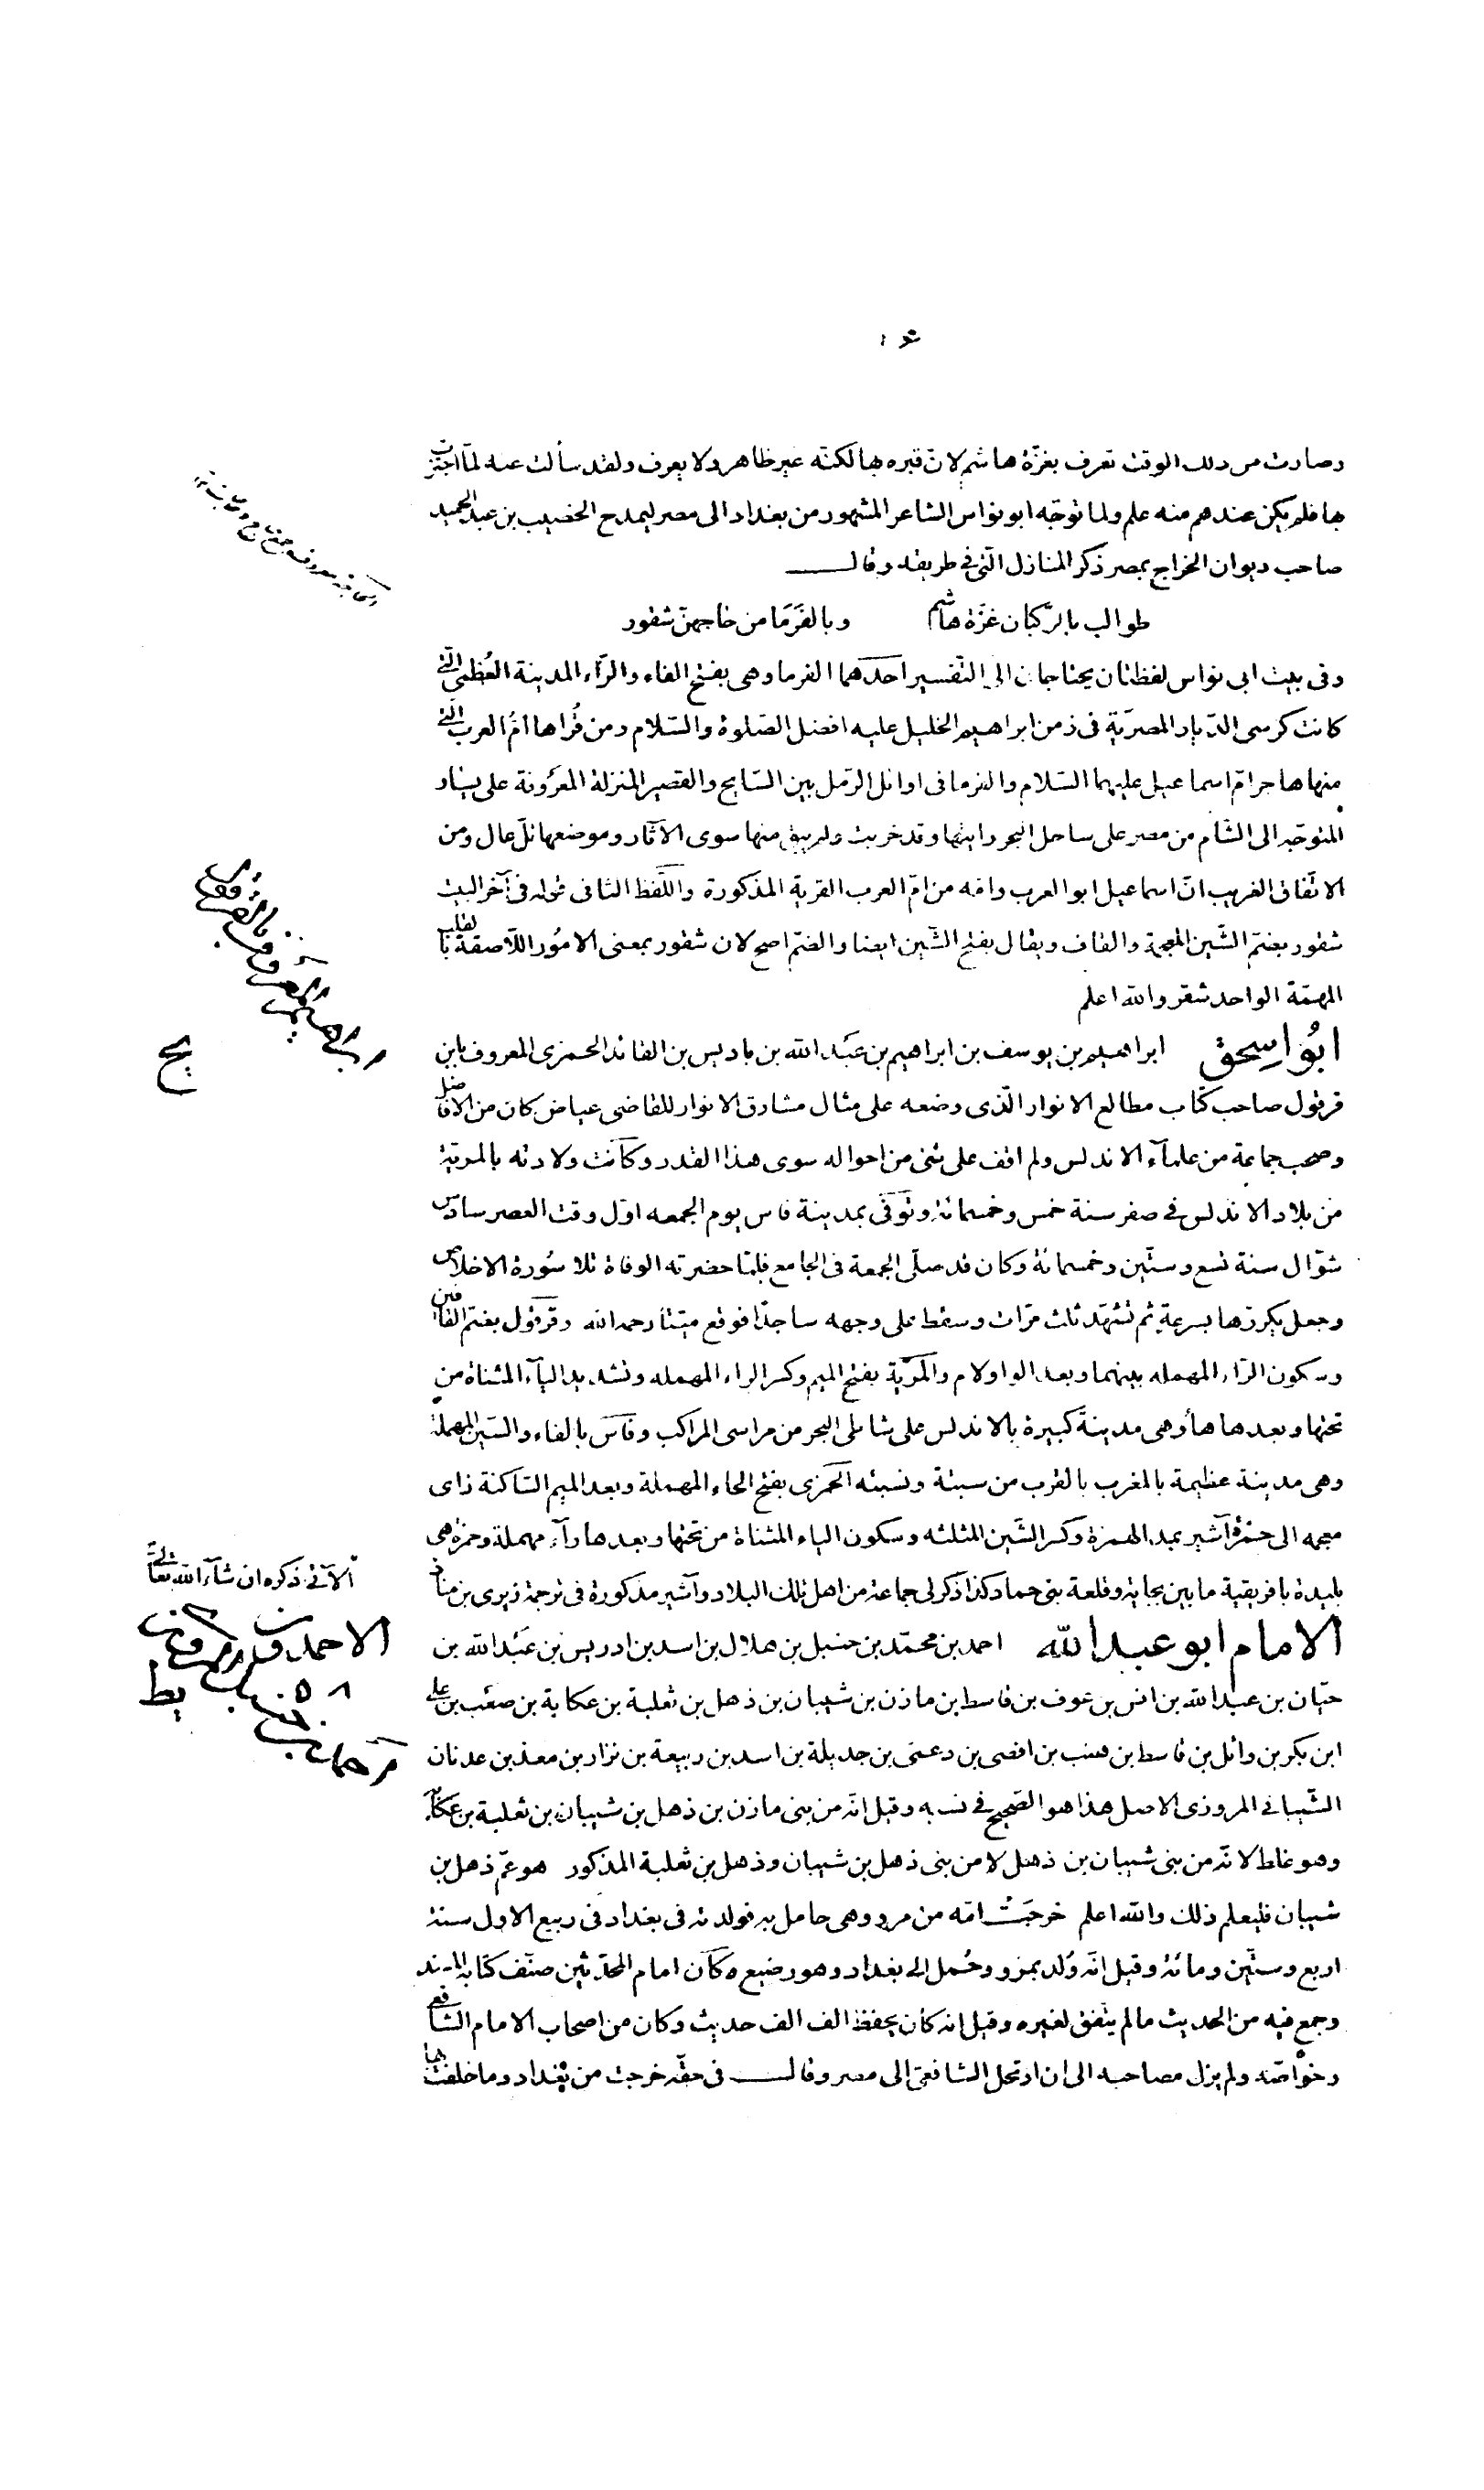 وصارت من ذلك الوقت تعرف بغزّة هاشم لانّ قبره بها لكنّه غير ظاهر ولا يعرف ولقد سألت عنه لمّا اجتزت
بها فلم يكن عندهم منه علم ولما توجّه ابو نواس الشاعر المشهور من بغداد الى مصر ليمدح الخصيب بن عبد الحميد
صاحب ديوان الخراج بمصر ذكر المنازل الّتى فى طريقه وقال
طوالب بالرّكبان غزّة هاشم وبالفَرَمَا من حاجهنّ شقور
وفى بيت ابى نواس لفظتان يحتاجان الى التّفسير احدهما الفرما وهى بفتح الفاء والرّاء المدينة العُظمى الّتى
كانت كرسى الدّيار المصريّة فى زمن ابراهيم الخليل عليه افضل الصّلوة والسّلام ومن قُراها امّ العرب الّتى
منها هاجر امّ اسماعيل عليهما السّلام والفرما فى اوائل الرّمل بين السّايح والقصير المنزلة المعروفة على يسار
المتوجّه الى الشّام من مصر على ساحل البحر رايتها وقد خربت ولم يبق منها سوى الآثار وموضعها تلّ عال ومن
الاتّفاق الغريب انّ اسماعيل ابو العرب وامّه من امّ العرب القرية المذكورة واللّفظ الثانى قوله فى آخر البيت
شقور بضمّ الشّين المعجمة والقاف ويقال بفتح الشّين ايضا والضمّ اصح لان شقور بمعنى الامُور اللّاصقة بالقلب
المهمّة الواحد شقر والله اعلم
ابُو اسِحق ابراهيم بن يوسف بن ابراهيم بن عبَد الله بن باديس بن القائد الحمزى المعروف بابن
قرقول صاحب كتاب مطالع الانوار الّذى وضعه على مثال مشارق الانوار للقاضى عياض كان من الافاضل
وصحب جماعة من علمآء الاندلس ولم اقف على شئ من احواله سوى هذا القدر وكانت ولادته بالمريّة
من بلاد الاندلس فى صفر سنة خمس وخمسمائة وتوفّى بمدينة فاس يوم الجمعه اوّل وقت العصر سادس
شوّال سنة تسع وستّين وخمسمائة وكان قد صلّى الجمعة فى الجامع فلمّا حضرته الوفاة تلا سُورة الاخلاص
وجعل يكررّها بسرعة ثم تشهّد ثلث مرّات وسقط على وجهه ساجدًا فوقع ميّتًا رحمه الله وقرقول بضمّ القافين
وسكون الرّاء المهمله بينهما وبعد الواو لام والمريّة بفتح الميم وكسر الراء المهمله وتشديد اليآء المثناة من
تحتها وبعدها هاء وهى مدينة كبيرة بالاندلس على شاطى البحر من مراسى المراكب وفاس بالفاء والسّين المهملة
وهى مدينة عظيمة بالمغرب بالقرب من سبتة ونسبته الحمزى بفتح الحاء المهملة وبعد الميم السّاكنة زاى
معجمه الى حمزة آشير بمد الهمزة وكسر الشّين المثلثه وسكون الياء المثناة من تحتها وبعدها رآء مهملة وحمزة هى
بليدة بافريقية ما بين بجاية وقلعة بنى حماد كذا ذكر لى جماعة من اهل تلك البلاد وآشير مذكورة فى ترجمة زيرى بن مناد
الآتى ذكره ان شآء الله تعالى
الامام ابو عبد الله احمد بن محمّد بن حنبل بن هلال بن اسد بن ادريس بن عبَد الله بن
حيّان بن عبد الله بن انس بن عوف بن قاسط بن مازن بن شيبان بن ذهل بن ثعلبة بن عكابة بن صعب بن على
ابن بكر بن وائل بن قاسط بن هنب بن افصى بن دعمى بن جديلة بن اسد بن ربيعة بن نزار بن معد بن عدنان
الشّيبانى المروزى الاصل هذا هو الصّحيح فى نسبه وقيل انّه من بنى مازن بن ذهل بن شيبان بن ثعلبة بن عكابة
وهو غلط لانّه من بنى شيبان بن ذهل لا من بنى ذهل بن شيبان وذهل بن ثعلبة المذكور هو عمّ ذهل بن
شيبان فليعلم ذلك والله اعلم خرجَتْ امّه من مرو وهى حامل به فولدته فى بغداد فى ربيع الاول سنة
اربع وستّين ومائة وقيل انّه وُلد بمرو وحُمل الى بغداد وهو رضيع وكان امام المحدّثين صنّف كتابه المسند
وجمع فيه من الحديث ما لم يتّفق لغيره وقيل انه كان يحفظ الف الف حديث وكان من اصحاب الامام الشّافعى
وخواصّه ولم يزل مصاحبه الى ان ارتحل الشافعى الى مصر وقال فى حقّه خرجت من بغداد وما خلفت بها
يح
يط